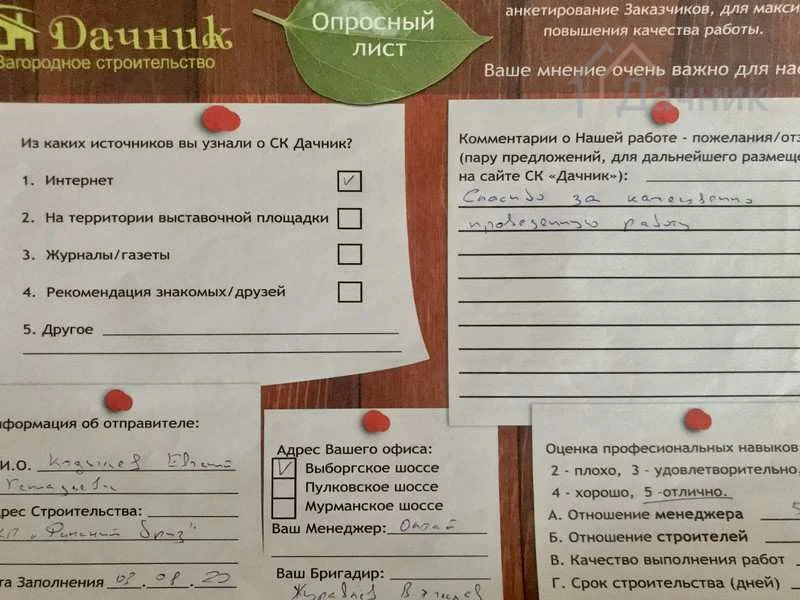 Дачник
Загородное строительство
Опросный
лист
анкетирование Заказчиков, для макси
повышения качества работы.
Ваше мнение очень важно для нас
Дачник
Из каких источников вы узнали о СК Дачник?
1. Интернет
2. На территории выставочной площадки
3. Журналы/газеты
4. Рекомендация знакомых/друзей
5. Другое
Комментарии о Нашей работе - пожелания/отз
(пару предложений, для дальнейшего размеще
на сайте СК «Дачник»):
Спасибо за качественно
проведенную работу
нформация об отправителе:
И.О. Евгений
дрес Строительства:
КП „Финский бриз"
та Заполнения 03.08.20
Адрес Вашего офиса:
Выборгское шоссе
Пулковское шоссе
Мурманское шоссе
Ваш Менеджер:
Ваш Бригадир:
Журавлев
Оценка профессиональных навыков
2 - плохо, 3 - удовлетворительно,
4 - хорошо, 5 -отлично.
А. Отношение менеджера 5
Б. Отношение строителей
В. Качество выполнения работ
Г. Срок строительства (дней)